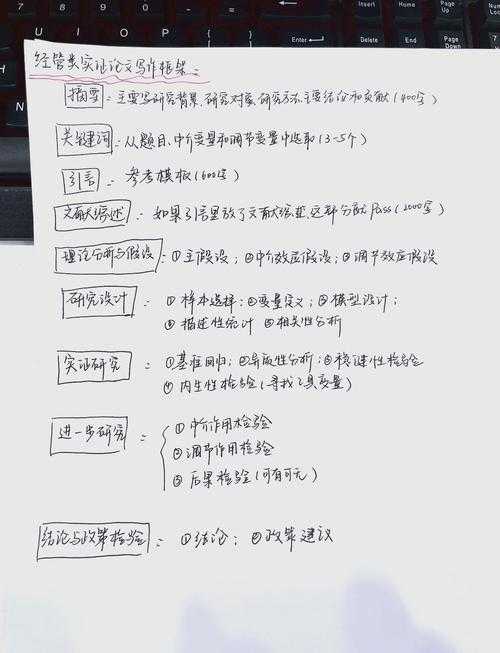 Insert
Home
Page Up
Enter
Delete
End
Page Down
经管类实证论文写作框架：
摘要：主要写研究背景、研究对象、研究方法、主要结论和贡献（400字）
关键词：从题目、中介变量和调节变量中选取（3-5个）
引言：参考模板（600字）
文献综述：如果引言里放了文献综述，这部分就Pass（2000字）
理论分析与假设：①主假设；②中介效应假设；③调节效应假设
研究设计：①样本选择；②变量定义；③模型设计；
④描述性统计 ⑤相关性分析
实证研究：①基准回归；②异质性分析；③稳健性检验
④内生性检验（寻找工具变量）
进一步研究：①中介作用检验
②调节作用检验
③后果检验（可有可无）
结论与政策检验：①结论；②政策建议